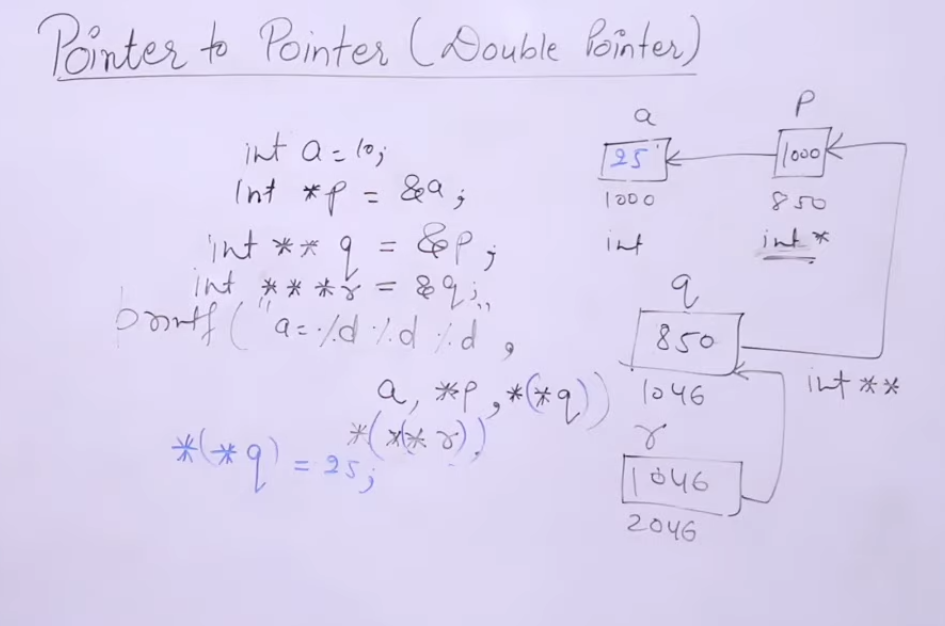 Pointer to Pointer (Double Pointer)
int a = 10;
int *p = &a;
int ** q = &p;
int ***r = &q;
printf("a= %d %d %d",
a, *p, *(*q))
*(*(*r));
*(*q) = 25;
a
25
1000
int
P
1000
850
int *
q
850
1046
int **
r
1046
2046